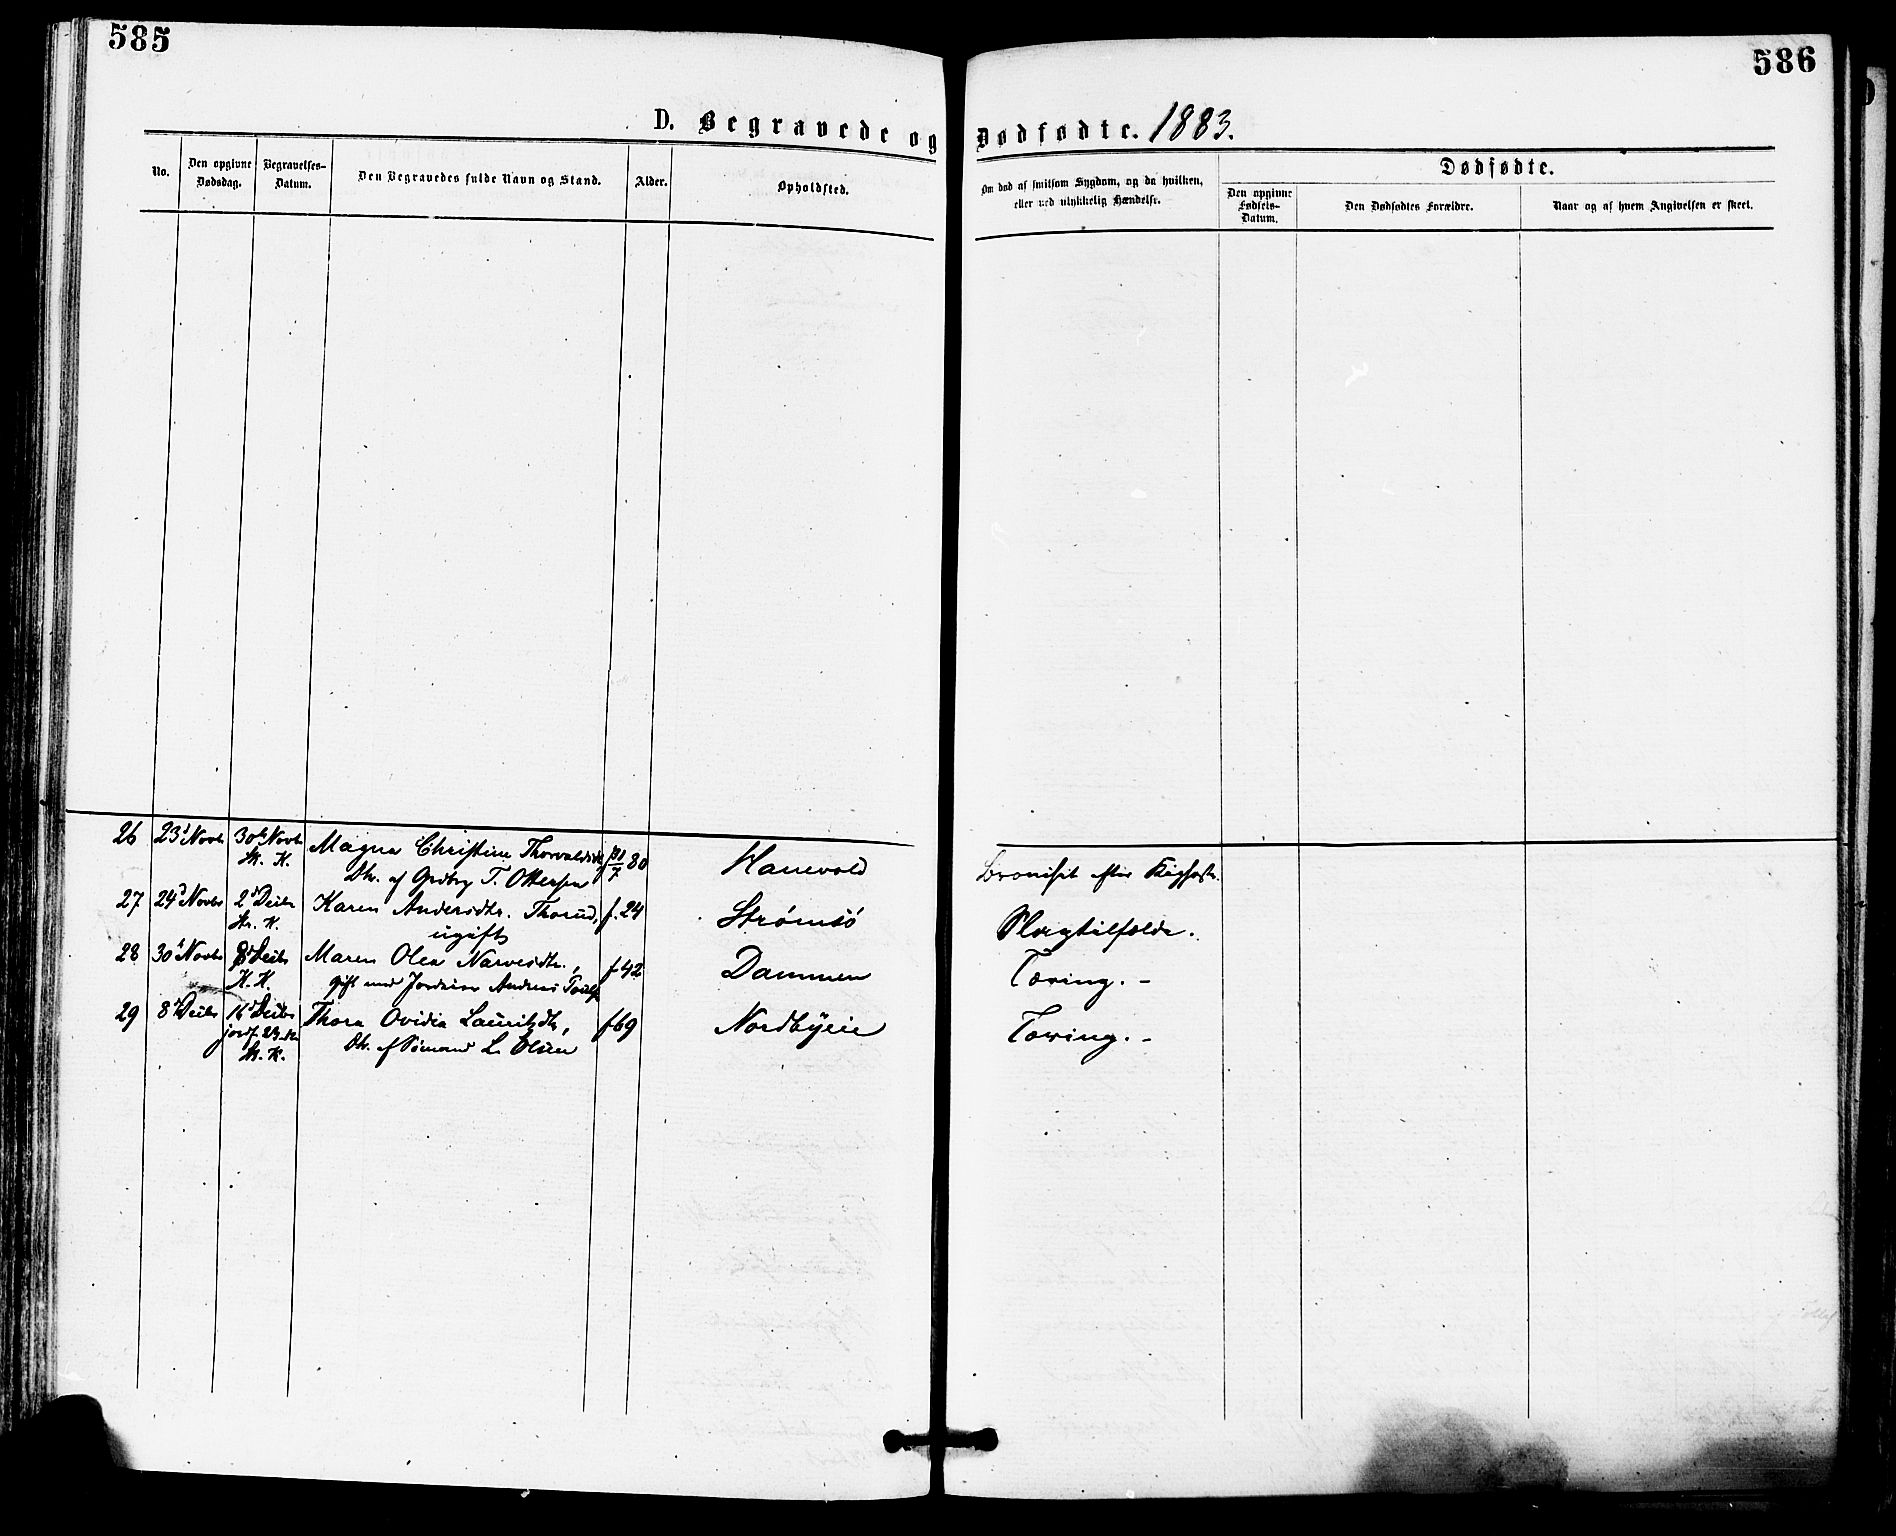 585
586
D. Begravede og Dødfødte. 1883.
No.
Den opgivne Dødsdag.
Begravelses-Datum.
Den Begravedes fulde Navn og Stand.
Alder.
Opholdsted.
Om død af smitsom Sygdom, og da hvilken, eller ved ulykkelig Hændelse.
Dødfødte.
Den opgivne Fødsels-Datum.
Den Dødfødtes Forældre.
Naar og af hvem Angivelsen er skeet.
26 23d Novbr 30te Novbr Magna Christine Thorvaldsdtr f 80 Hanevold Bronchit efter Kighoste.
St. K. Dtr. af T. Ottersen
27 24d Novbr 2d Decbr Karen Andersdtr. Thorud, f. 24 Strømsö Slagtilfælde.
St. K. ugift
28 30d Novbr 8d Decbr Maren Olea Narvesdtr., f 42 Dammen Tæring. –
K. K. gift med Andreas
29 8d Decbr Decbr Thora Ovidia Lauritzdtr, f 69 Nordbyeie Tæring. –
St. K. Dtr. af Sømand L. Olsen